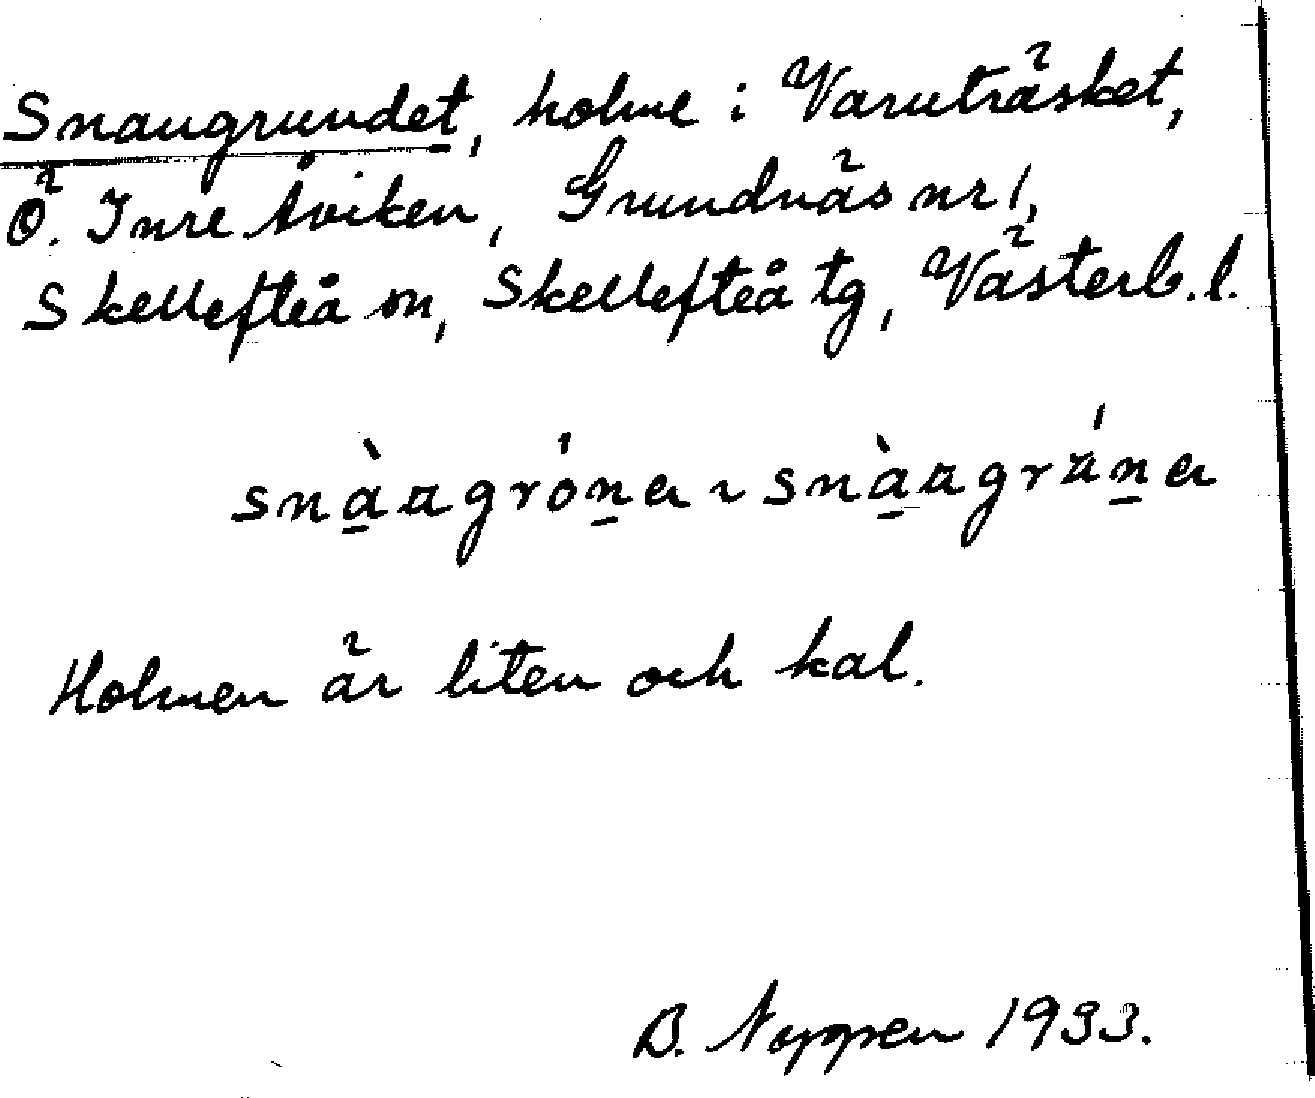 Snaugrundet, holme i Varuträsket,
Ö. Inre Åviken, Grundnäs nr 1,
Skellefteå sn, Skellefteå tg, Västerb. l.
Holmen är liten och kal.
B. Noppen 1933.